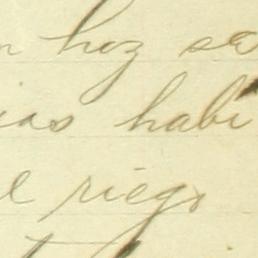 n hoz se
ias habi
el riego